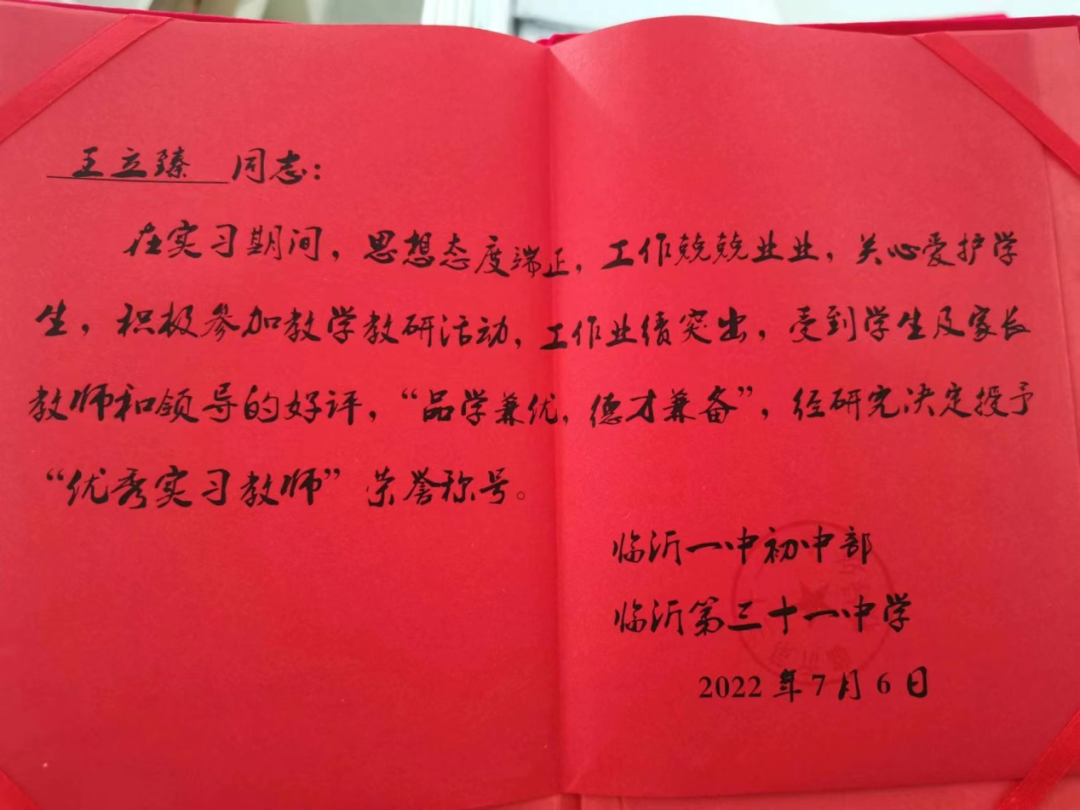 王立臻 同志：
在实习期间，思想态度端正，工作兢兢业业，关心爱护学
生，积极参加教学教研活动，工作业绩突出，受到学生及家长
教师和领导的好评，“品学兼优，德才兼备”，经研究决定授予
“优秀实习教师”荣誉称号。
临沂一中初中部
临沂第三十一中学
2022年7月6日